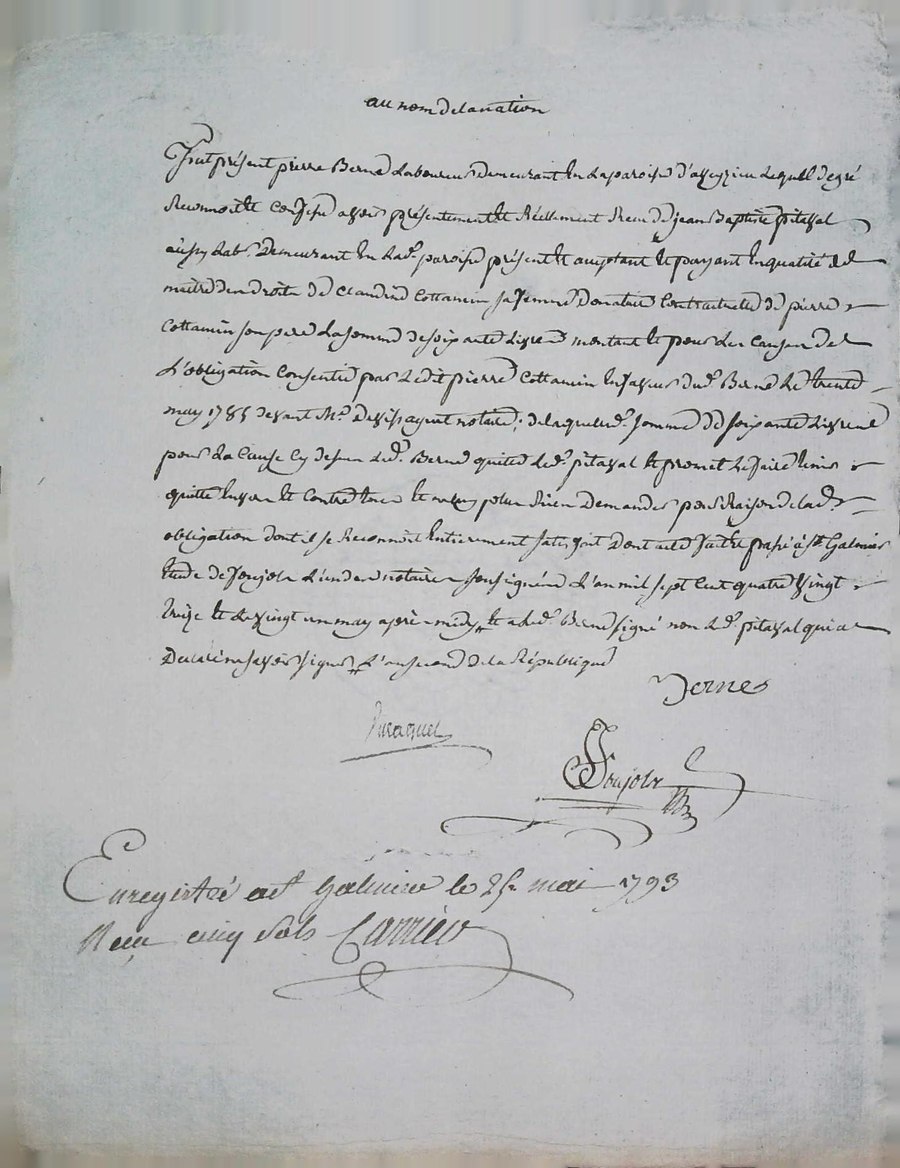 au nom de la nation
Fut présent pierre Berne laboureur demeurant en la paroisse d'aveyzieu lequel de gré
reconnoit et confesse avoir présentement et réellement reçu de jean Baptiste pitaval
aussy lab.r demeurant en lad.e paroisse présent et acceptant et payant en qualité de
maitre des droits de Claudine Cottancin sa femme donataire contractuelle de pierre
Cottancin son pere la somme de soixante livres montant et pour les causes de
L'obligation consentie par ledit pierre Cottancin en faveur dud. Berne le trente
may 1785 devant M.e notaire, de laquelle d. somme de soixante livres
pour la cause cy dessus led. Berne quitte led. pitaval et promet le faire tenir
quitte envers et contre tous et ne plus rien demander pour raison de lad.
obligation dont il se reconnoit entierement satisfait dont acte fait et passé à st Galmier
Etude de Foujols l'un des notaires soussignés l'an mil sept cent quatre vingt
treize et le vingt un may après midy et a led. Berne signé non led. pitaval qui a
declaré ne savoir signer l'an second de la République
Berne
Foujols
Enregistré a st Galmier le 25 mai 1793
Reçu cinq sols Carrier